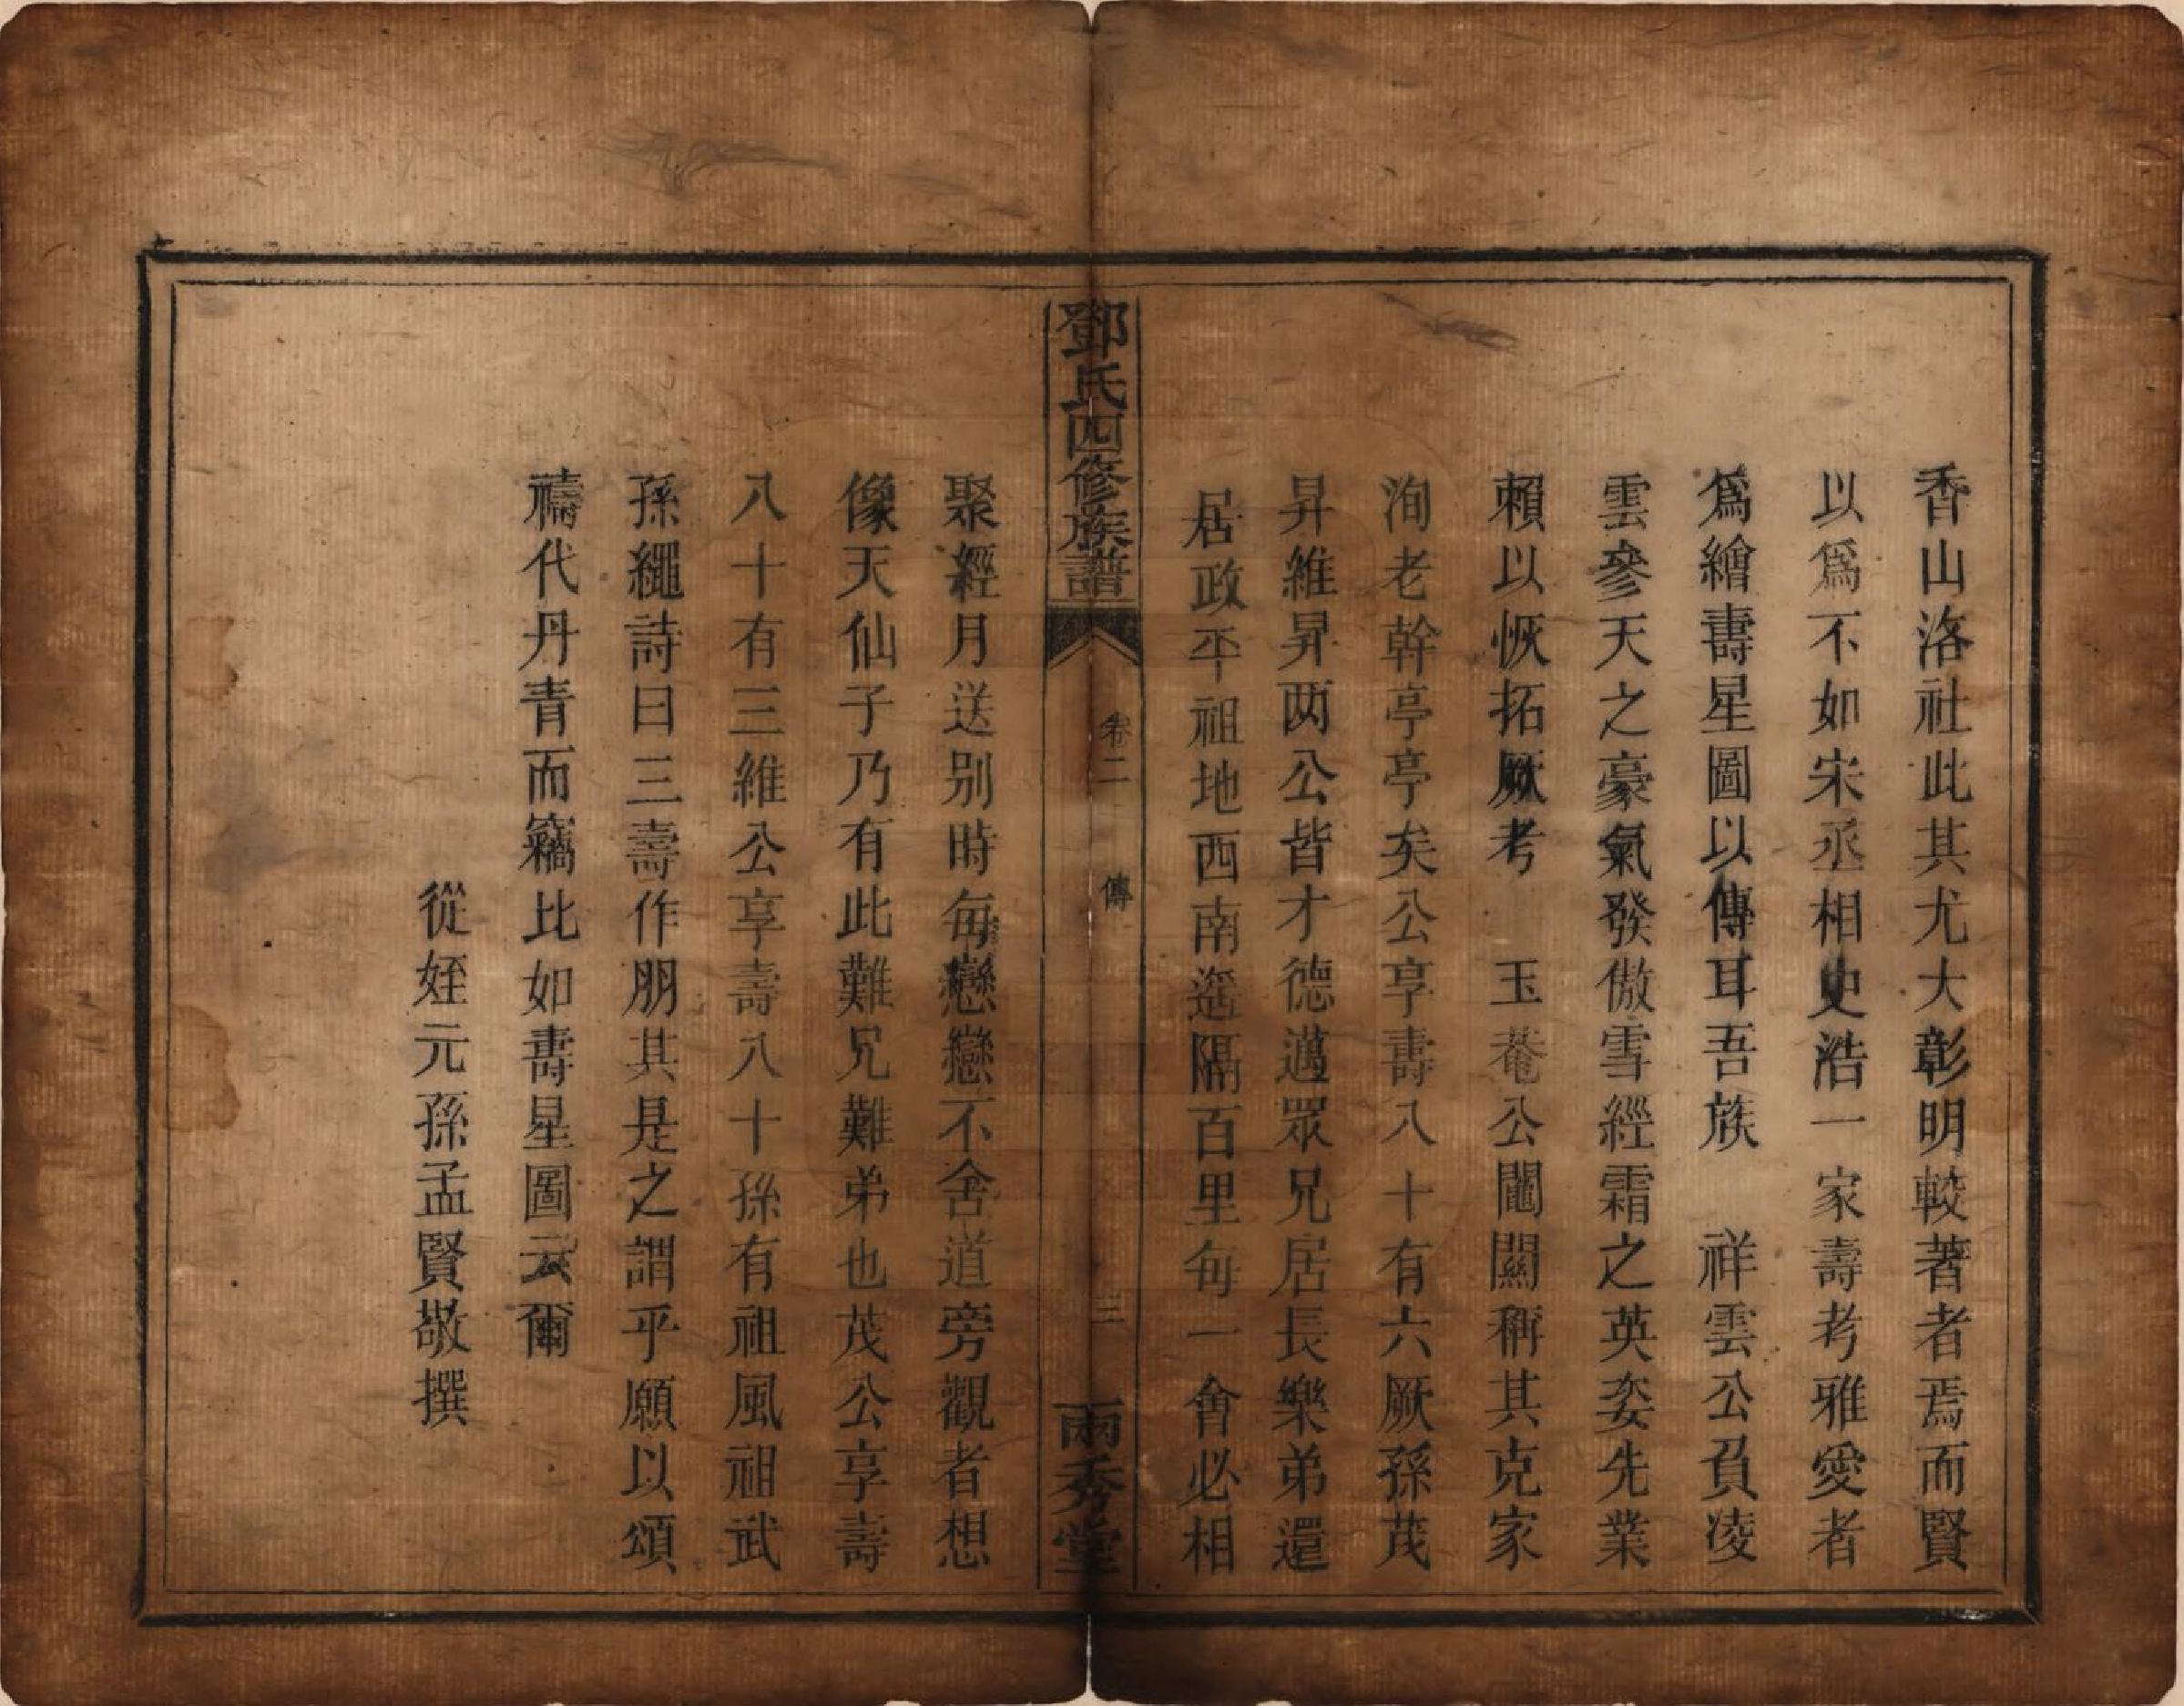 香山洛社此其尤大彰明較著者焉而賢
以爲不如宋丞相史浩一家壽考雅愛者
爲繪壽星圖以傳耳吾族　祥雲公負凌
雲參天之豪氣發傲雪經霜之英姿先業
賴以恢拓厥考　玉菴公闔闢稱其克家
洵老幹亭亭矣公享壽八十有六厥孫茂
昇維昇两公皆才德邁眾兄居長樂弟還
居政平祖地西南遥隔百里每一會必相
鄧氏四修族譜
卷二　傳　三
雨秀堂
聚經月送别時每戀戀不舍道旁觀者想
像天仙子乃有此難兄難弟也茂公享壽
八十有三維公享壽八十孫有祖風祖武
孫繩詩曰三壽作朋其是之謂乎願以頌
禱代丹青而竊比如壽星圖云爾
從姪元孫孟賢敬撰